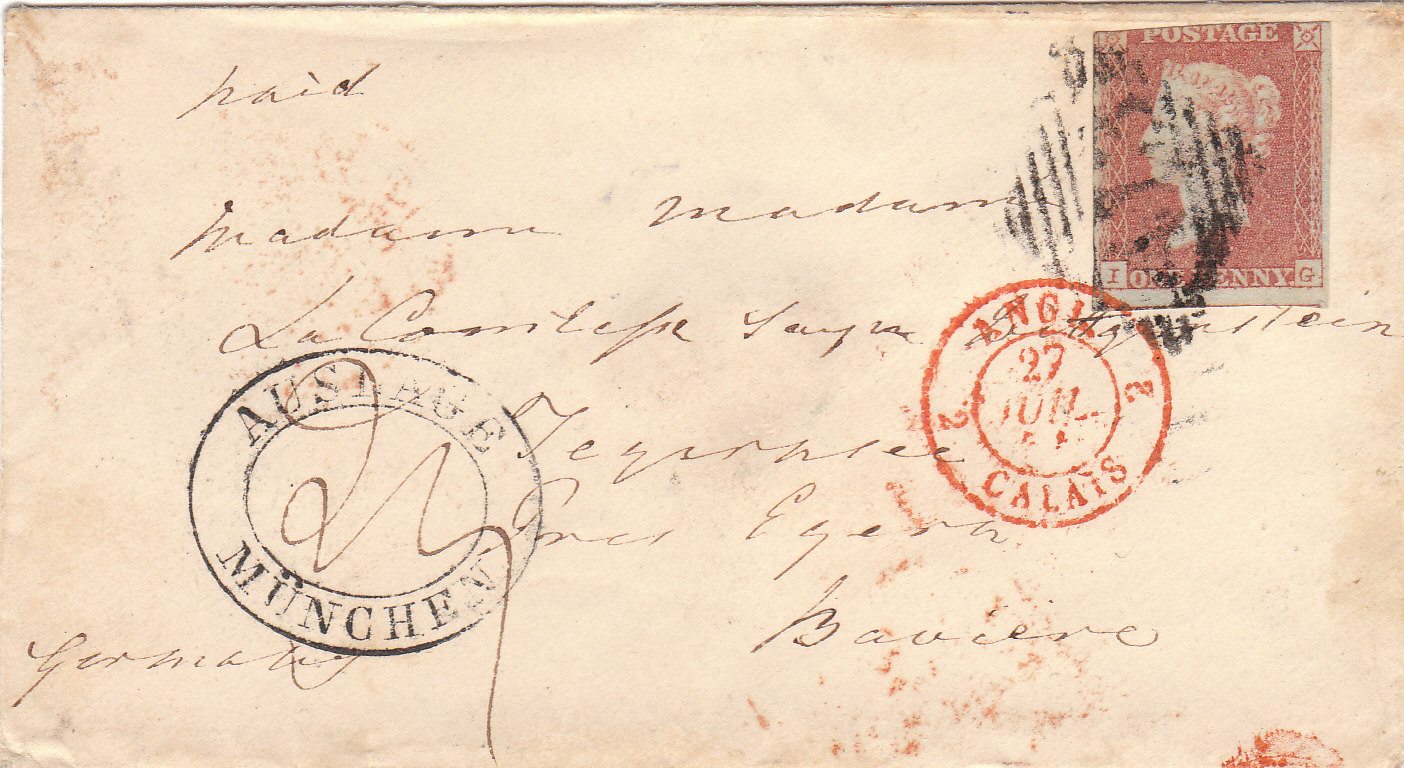 paid
POSTAGE
ONE PENNY
I G
Madame Madame
La Comtesse Sayn Wittgenstein
ANGL.
2 27 2
JUIL.
CALAIS
AUSLAGE
MÜNCHEN
Tegernsee
Pres Egern
Baviere
Germany